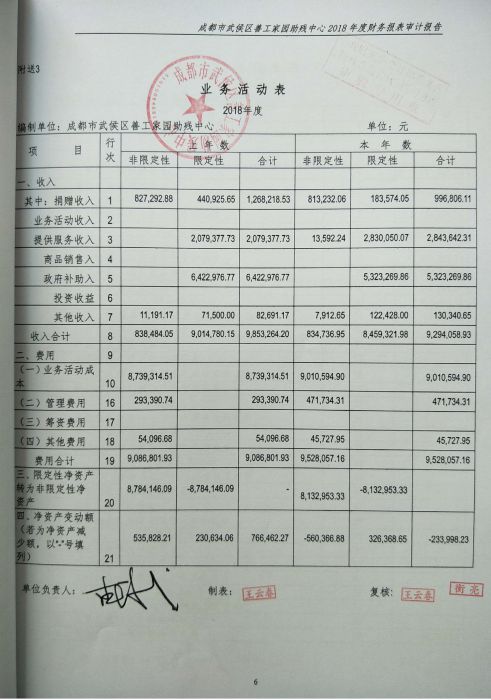 成都市武侯区善工家园助残中心2018年度财务报表审计报告
附送3
业务活动表
2018年度
编制单位：成都市武侯区善工家园助残中心 单位：元
项 目 行次 上年数 本年数
非限定性 限定性 合计 非限定性 限定性 合计
一、收入
其中：捐赠收入 1 827,292.88 440,925.65 1,268,218.53 813,232.06 183,574.05 996,806.11
业务活动收入 2
提供服务收入 3 2,079,377.73 2,079,377.73 13,592.24 2,830,050.07 2,843,642.31
商品销售入 4
政府补助入 5 6,422,976.77 6,422,976.77 5,323,269.86 5,323,269.86
投资收益 6
其他收入 7 11,191.17 71,500.00 82,691.17 7,912.65 122,428.00 130,340.65
收入合计 8 838,484.05 9,014,780.15 9,853,264.20 834,736.95 8,459,321.98 9,294,058.93
二、费用 9
（一）业务活动成本 10 8,739,314.51 8,739,314.51 9,010,594.90 9,010,594.90
（二）管理费用 16 293,390.74 293,390.74 471,734.31 471,734.31
（三）筹资费用 17
（四）其他费用 18 54,096.68 54,096.68 45,727.95 45,727.95
费用合计 19 9,086,801.93 9,086,801.93 9,528,057.16 9,528,057.16
三、限定性净资产转为非限定性净资产 20 8,784,146.09 -8,784,146.09 - 8,132,953.33 -8,132,953.33
四、净资产变动额（若为净资产减少额，以"-"号填列） 21 535,828.21 230,634.06 766,462.27 -560,366.88 326,368.65 -233,998.23
单位负责人： 制表： 王云春 复核： 王云春 衡亮
6